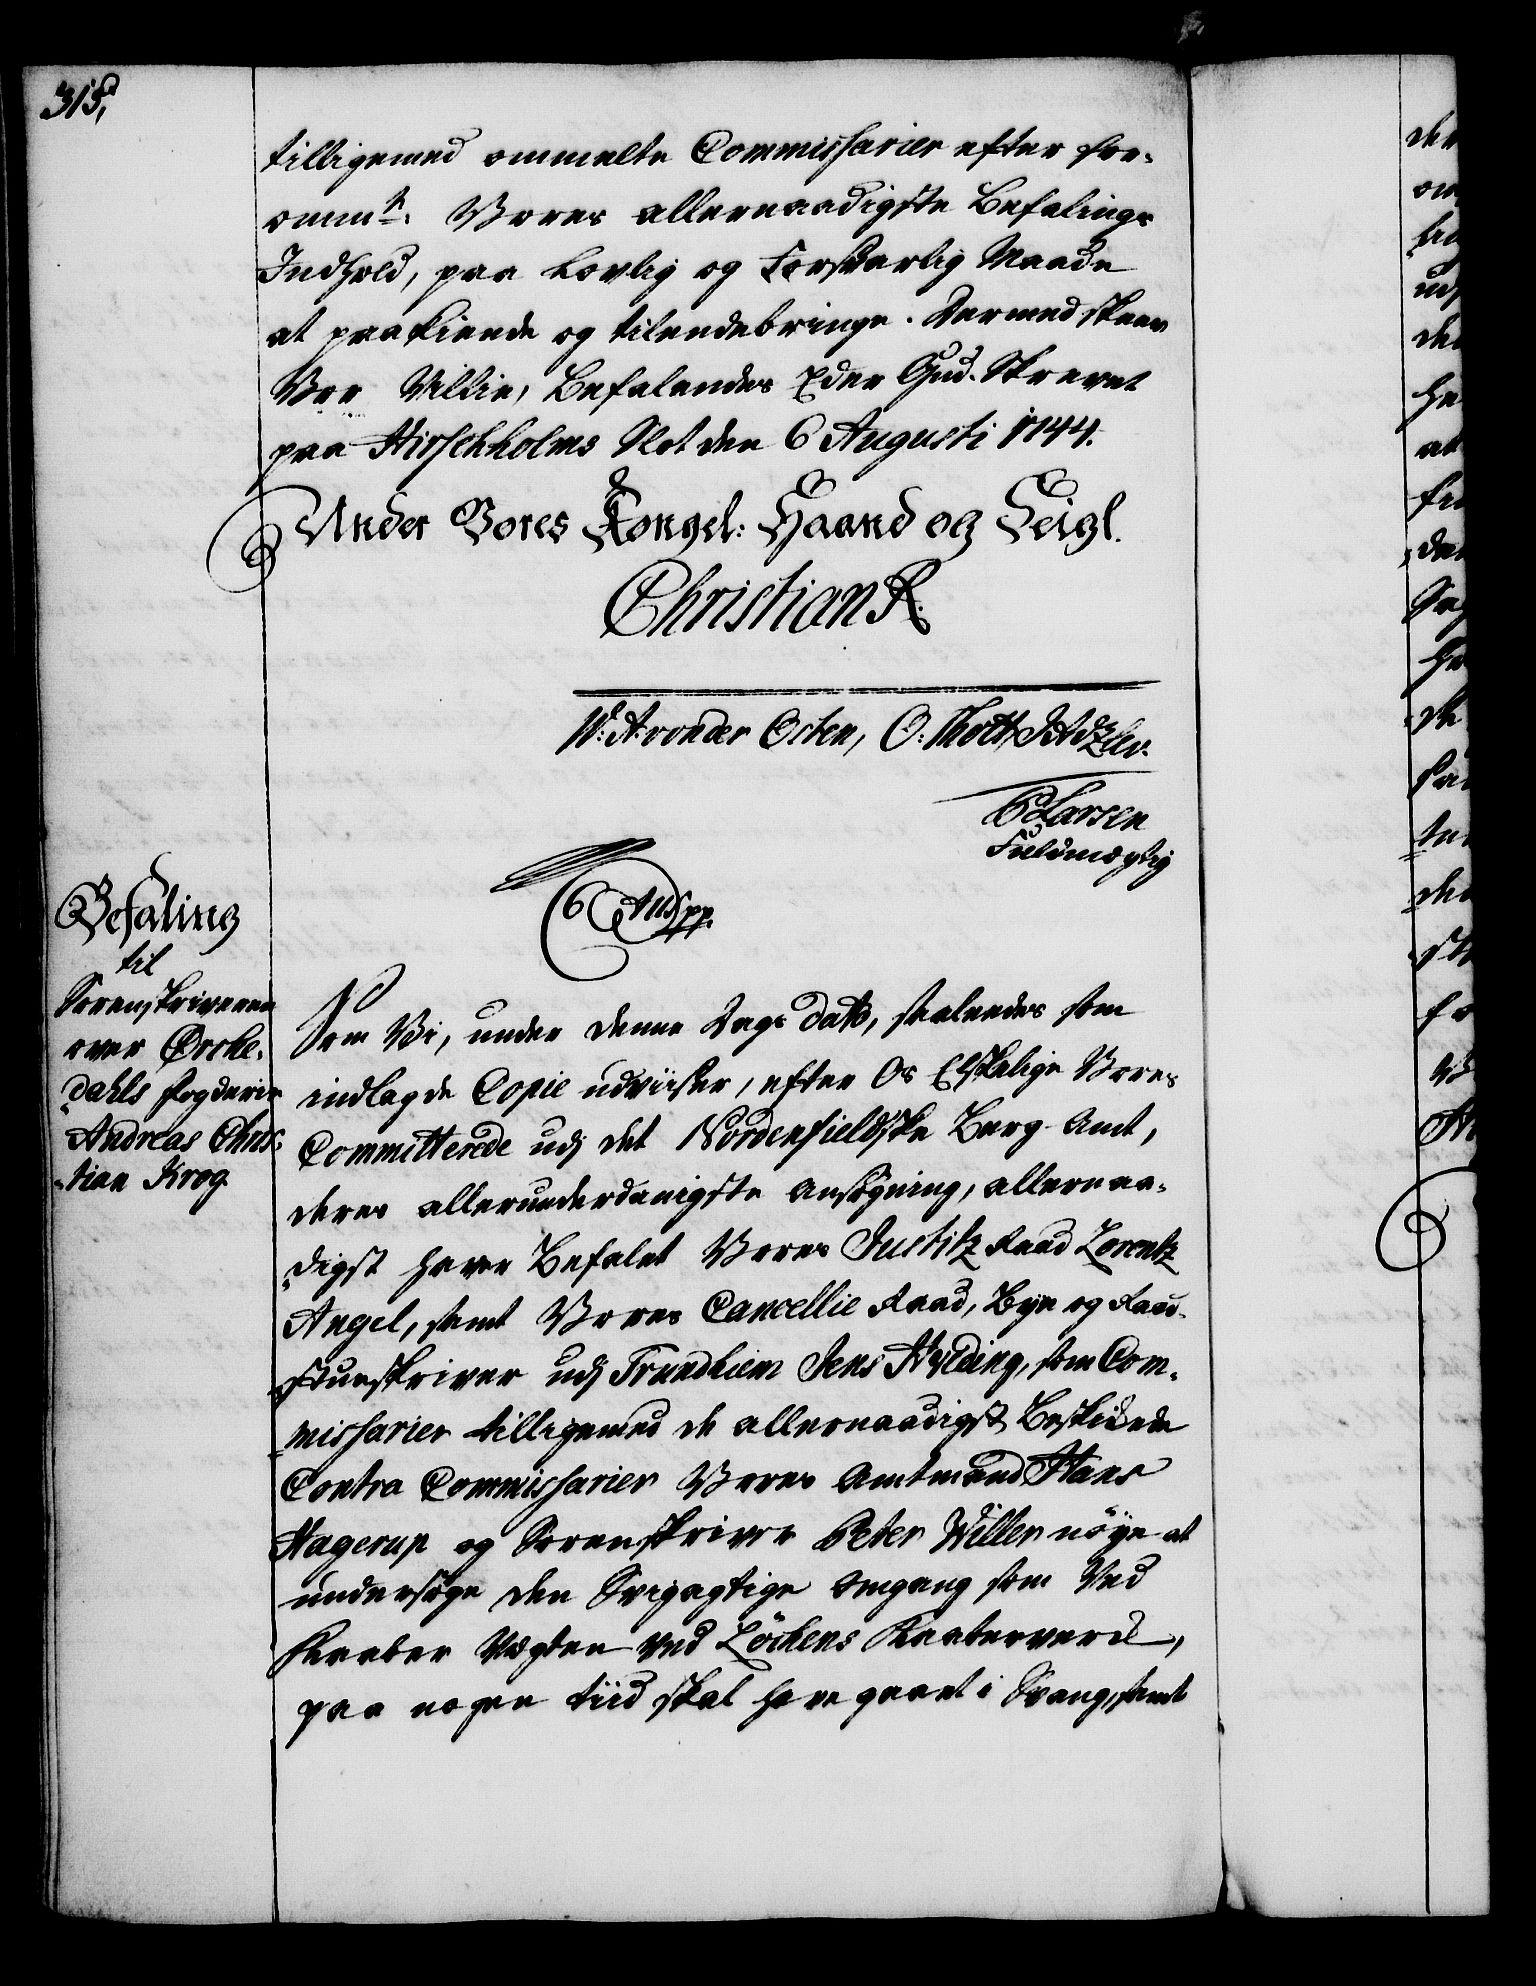 315,
tilligemed ommelte Commissarier efter for-
ommte. Vores allernaadigste Befalings
Indhold, paa Lovlig og Forsvarlig Maade
at paakiende og tilendebringe. Dermed skeer
Vor Villie, Befalendes Eder Gud. Skrevet
paa Hirschholms Slot den 6 Augusti 1744.
Under Vores Kongel: Haand og Seigl.
Christian R.
W: A: von der Osten, O: Thott,
C Larsen
Fuldmægtig
C 6tus pp.
Befaling
til
Sorenskriveren
over Orcke-
dahls Fogderie
Andreas Chris-
tian Krog
Som Vi, under denne Dags dato, saaleedes som
indlagde Copie udviiser, efter Os Elskelige Vores
Committerede udj det Nordenfieldske Berg-Amt,
deres allerunderdanigste Ansøgning, allernaa-
digst have Befalet Vores Justitz Raad Lorentz
Angel, samt Vores Cancellie Raad, Bye og Raad-
stueskriver udj Trundhiem Jens Hveding, som Com-
missarier tilligemed de allernaadigst Beskikede
Contra Commissarier Vores Amtmand Hans
Hagerup og Sorenskriver Peter Willer nøye at
undersøge den Svigagtige Omgang som Ved
Kaaber Vegten ved Löckens Kaaberverck,
paa nogen tiid skal have gaaet i Svang, samt